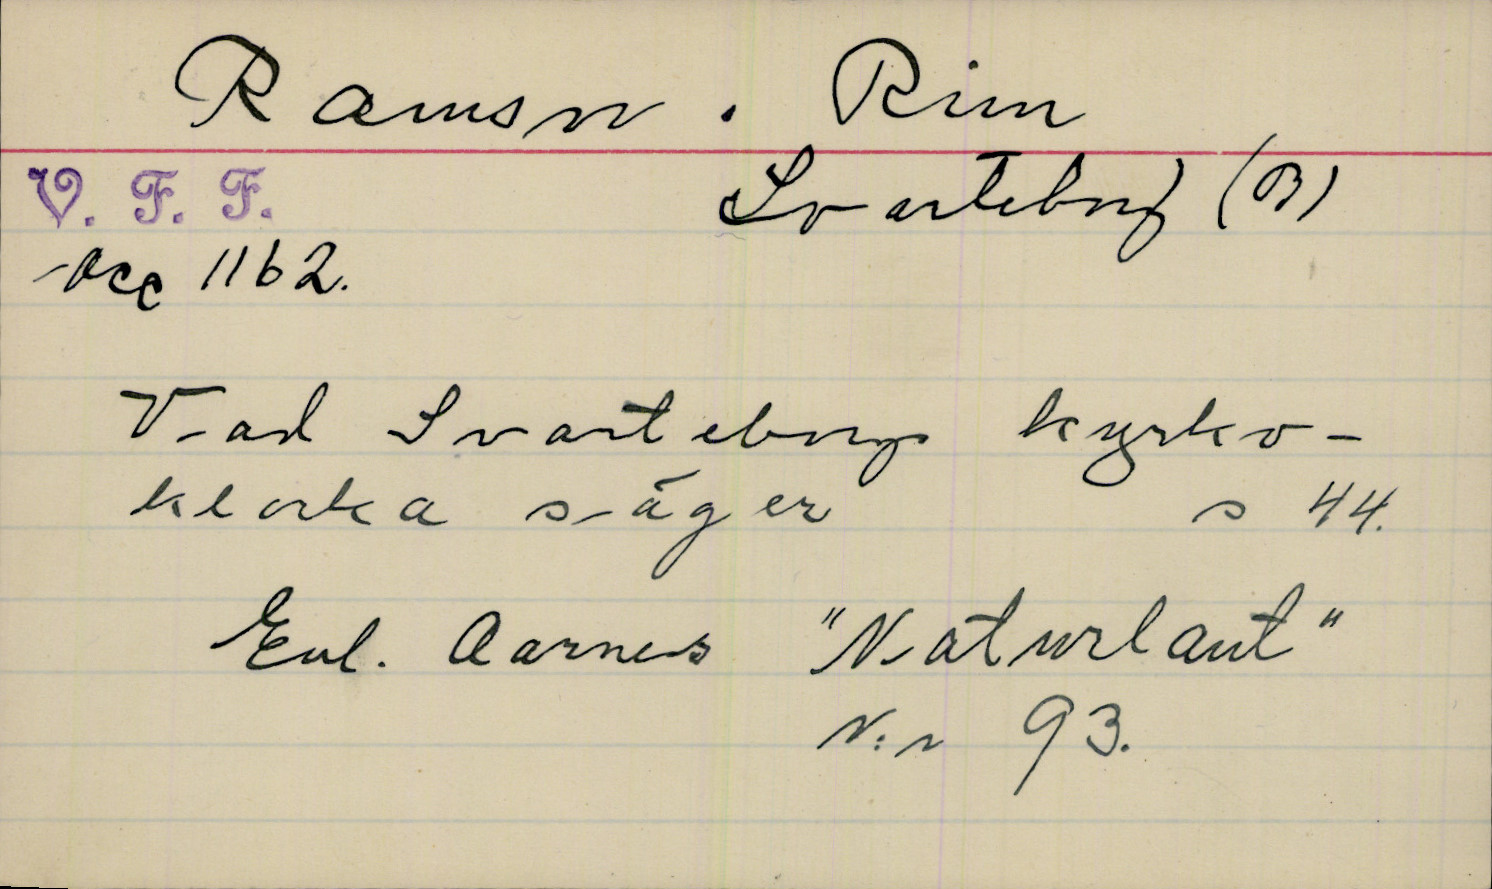 Ramsor. Rim
V. F. F. Svarteborg (B)
Acc 1162.
Vad Svarteborgs kyrko-
klocka säger s 44.
Enl. Aarnes "Naturlaut"
N:r 93.